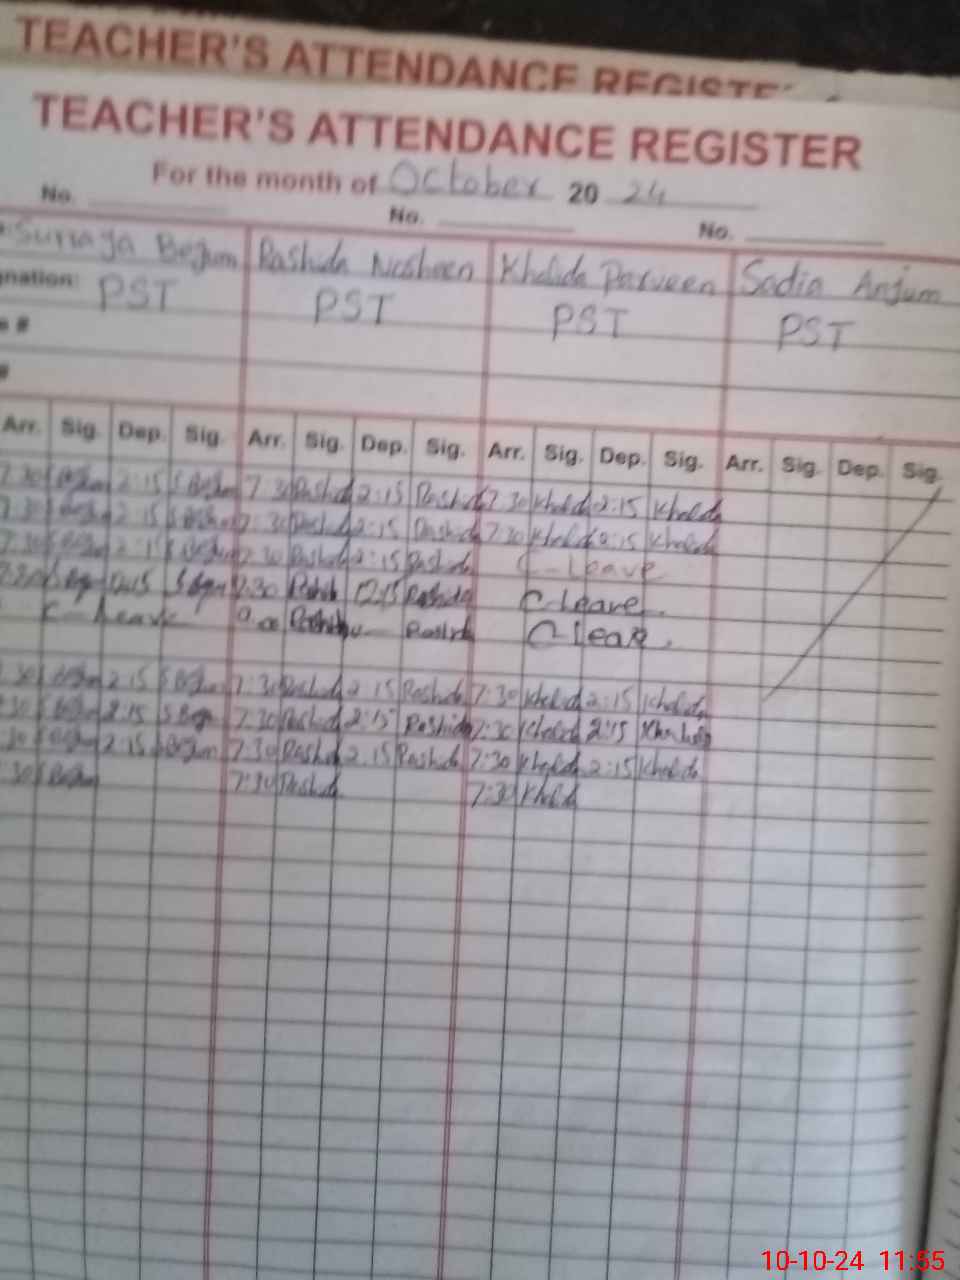 TEACHER'S ATTENDANCE REGISTER
TEACHER'S ATTENDANCE REGISTER
For the month of October 20 24
No. No. No.
Suriaya Begum Rashida Nosheen Khalida Parveen Sadia Anjum
nation: PST PST PST PST
#
Arr. Sig. Dep. Sig. Arr. Sig. Dep. Sig. Arr. Sig. Dep. Sig. Arr. Sig. Dep. Sig.
7:30 Begum 2:15 S Begum 7:30 Rashida 2:15 Rashida 7:30 Khalida 2:15 Khalida
7:30 Begum 2:15 S Begum 7:30 Rashida 2:15 Rashida 7:30 Khalida 2:15 Khalida
7:30 Begum 2:15 S Begum 7:30 Rashida 2:15 Rashida C-Leave
7:30 12:15 S Begum 7:30 Rashida 12:15 Rashida C-Leave
C-Leave 9:00 Rashida Rashida C Leav
:30 Begum 2:15 S Begum 7:30 Rashida 2:15 Rashida 7:30 Khalida 2:15 Khalida
:30 Begum 2:15 S Begum 7:30 Rashida 2:15 Rashida 7:30 Khalida 2:15 Khalida
:30 Begum 2:15 S Begum 7:30 Rashida 2:15 Rashida 7:30 Khalida 2:15 Khalida
:30 Begum 7:30 Rashida 7:30 Khalid
10-10-24 11:55